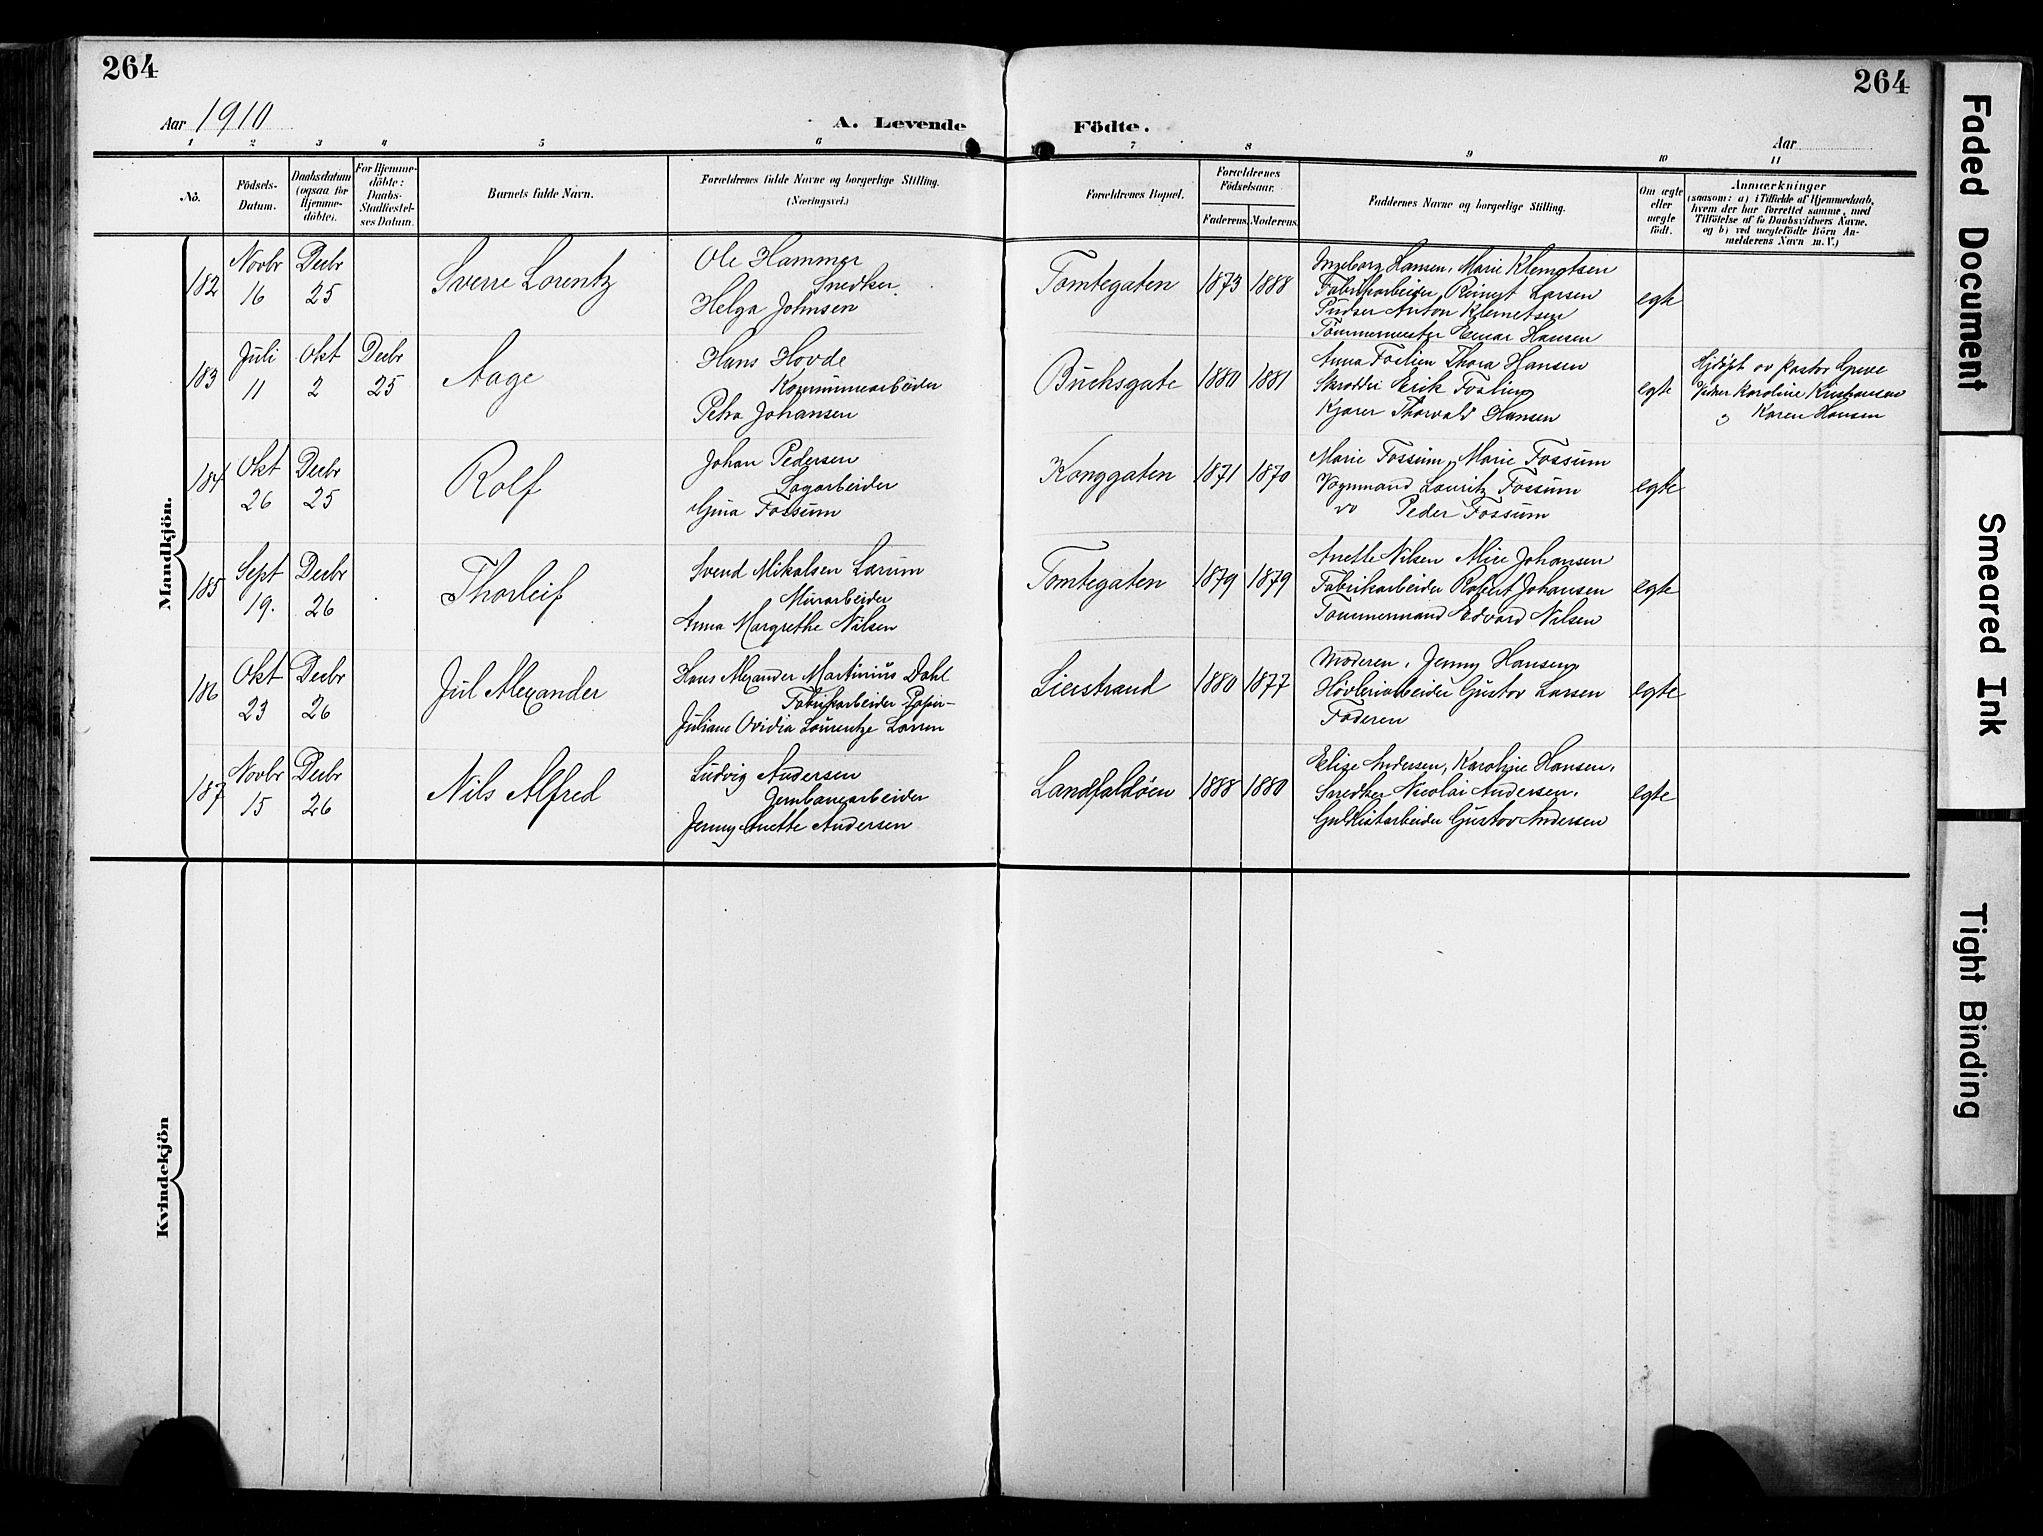 264
264
Aar 1910
A. Levende
Födte.
Aar
1 2 3 4 5 6 7 8 9 10 11
No.
Födsels-
Datum.
Daabsdatum
(ogsaa for
Hjemme-
döbte).
For Hjemme-
döbte:
Daabs-
Stadfæstel-
ses Datum.
Barnets fulde Navn.
Forældrenes fulde Navne og borgerlige Stilling.
(Næringsvei.)
Forældrenes Bopæl.
Forældrenes
Födselsaar.
Faderens. Moderens.
Faddernes Navne og borgerlige Stilling.
Om ægte
eller
uægte
født.
Anmærkninger
(saasom: a) i Tilfælde af Hjemmedaab,
hvem der har forrettet samme, med
Tilföielse af to Daabsvidners Navne.
og b) ved uægtefödte Börn An-
melderens Navn m. V.)
Mandkjön.
182
Novbr
16
Decbr
25
Sverre Lorentz
Ole Hammer
Snedker
Helga Johnsen
Tomtegaten
1873 1888
Ingeborg Hansen, Marie Klemetsen
Fabrikarbeider Larsen
Pudser Anton Klemetsen
Tömmermester Einar Hansen
egte
183
Juli
11
Okt
2
Decbr
25
Aage
Hans Hovde
Kommunearbeider
Petra Johansen
Buchsgate
1880 1881
Anna Thora Hansen
Skrædder Erik
Kjører Thorvald Hansen
egte
Hjdöpt av Pastor Greve
Vidner Karoline Kristiansen
Karen Hansen
184
Okt
26
Decbr
25
Rolf
Johan Pedersen
Sagarbeider
Gina Fossum
Konggaten
1871 1870
Marie Fossum, Marie Fossum
Vognmand Lauritz Fossum
do Peder Fossum
egte
185
Sept
19.
Decbr
26
Thorleif
Svend Mikalsen Larum
Murarbeider
Anna Margrethe Nilsen
Tomtegaten
1879 1879
Anette Nilsen Alice Johansen
Fabrikarbeider Robert Johansen
Tømmermand Edvard Nilsen
egte
186
Okt
23
Decbr
26
Jul Alexander
Hans Alexander Martinius Dahl
Fabrikarbeider Papir-
Juliane Ovidia Laurentze
Lierstrand
1880 1877
Moderen, Jenny Hansen
Høvleriarbeider Gustav Larsen
Faderen
egte
187
Novbr
15
Decbr
26
Nils Alfred
Ludvig Andersen
Jernbanearbeider
Jenny Anette Andersen
Landfaldøen
1888 1880
Elise Andersen, Karoline Hansen,
Snedker Nicolai Andersen,
Gullistarbeider Gustav Andersen
egte
Kvindekjön
Faded Document
Smeared Ink
Tight Binding